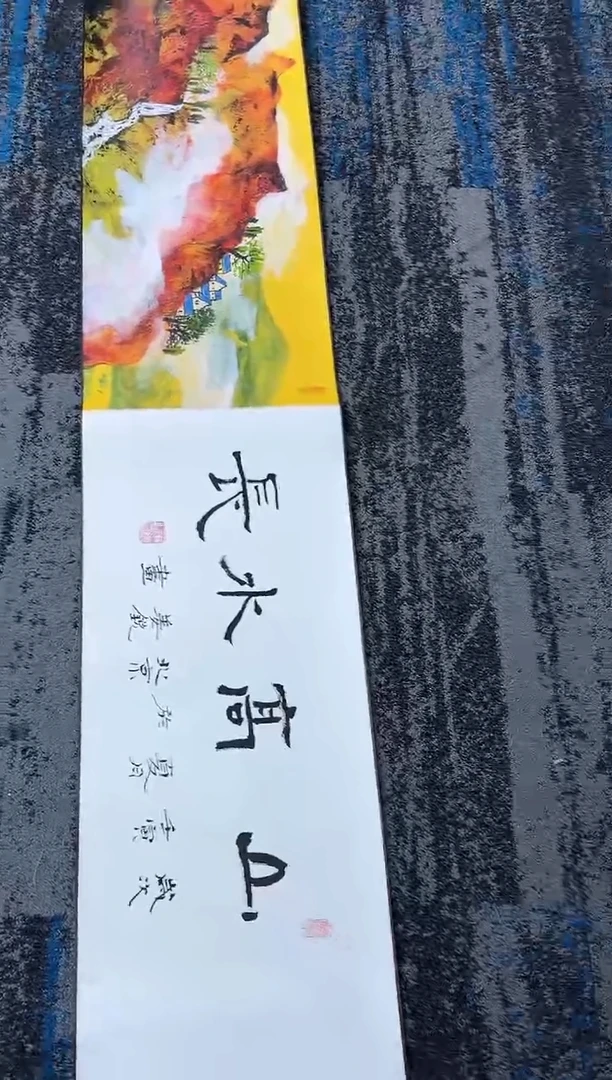 山高水長
歲次壬寅夏月於北京姜畫